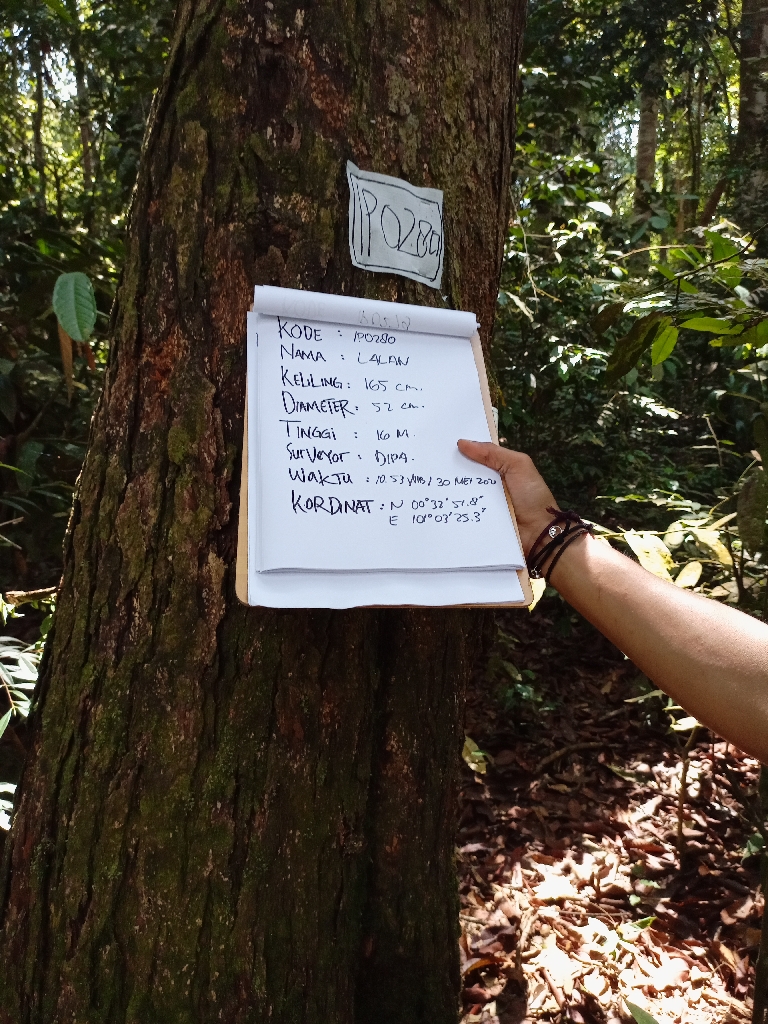 IP0280
KODE : IP0280
NAMA : LALAN
KELILING : 165 cm.
DIAMETER : 52 cm.
TINGGI : 16 M.
SurVeyor : DIPA.
WAKTU : 10.53 / 30 MEI
KORDINAT : N 00°32'51.8"
E 101°03'25.3"